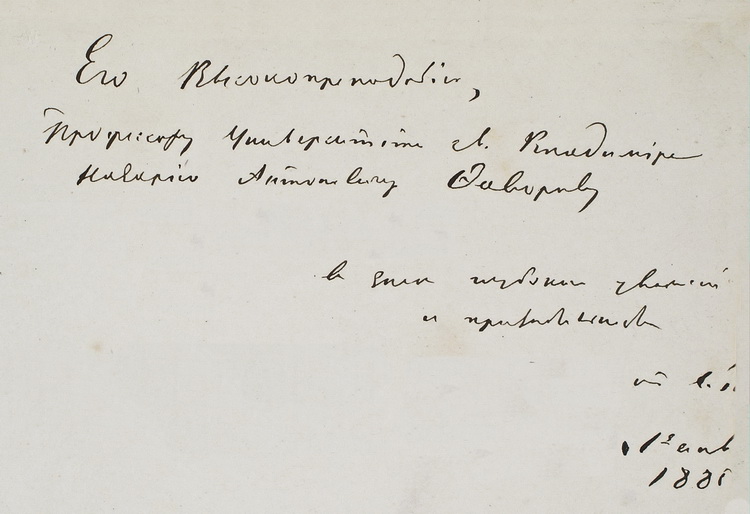 Его Высокопреподобію,
Профессору Университета св. Владиміра
Назарію Антоновичу Фаворову
въ знакъ глубокаго уваженія
и признательности
отъ
1885